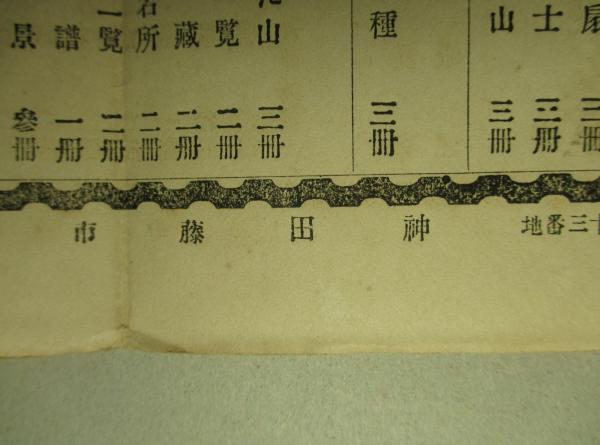 扇
士 三冊
山 三冊
種 三冊
山 三冊
覧 二冊
蔵 二冊
名所 二冊
一覧 二冊
譜 一冊
景 參冊
十三番地 神田 藤 市